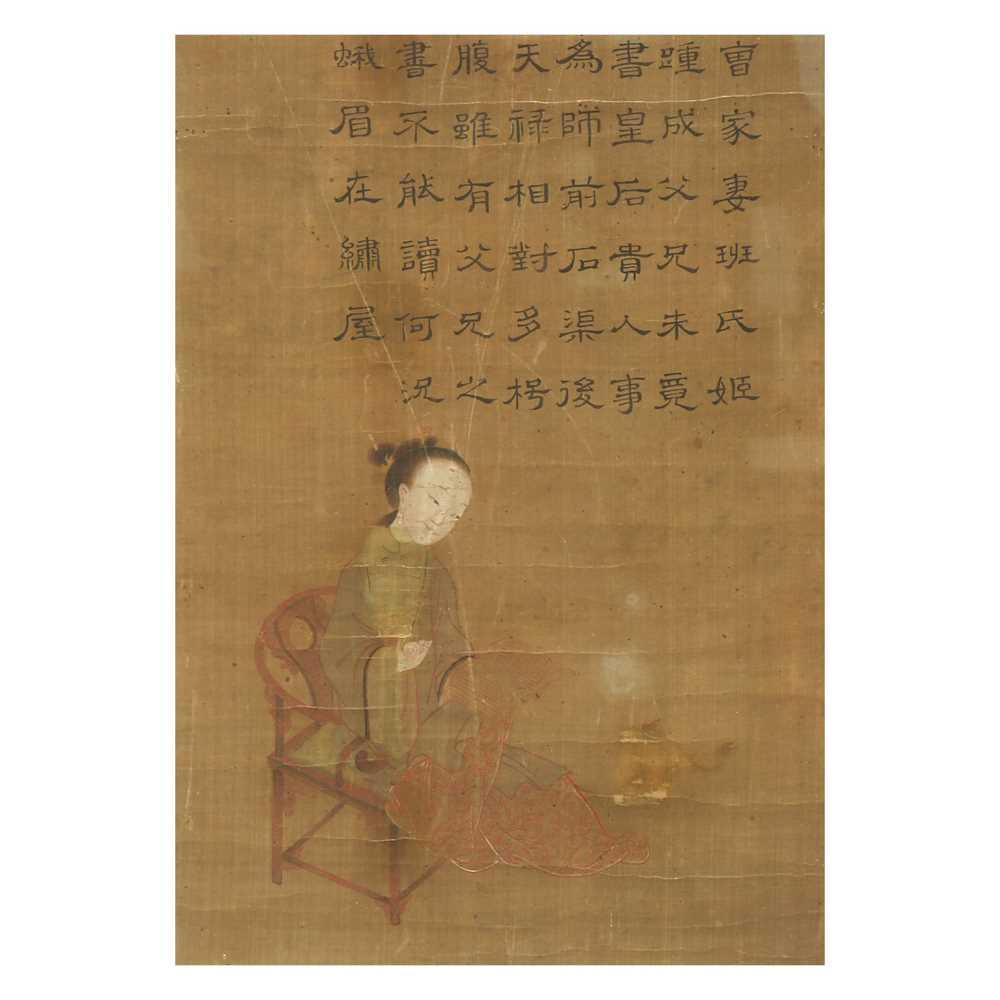 曺家妻班氏姬
踵成父兄未竟
書皇后貴人事
為師前石渠後
天禄相對多枵
腹雖有父兄之
書不能讀何況
蛾眉在繡屋